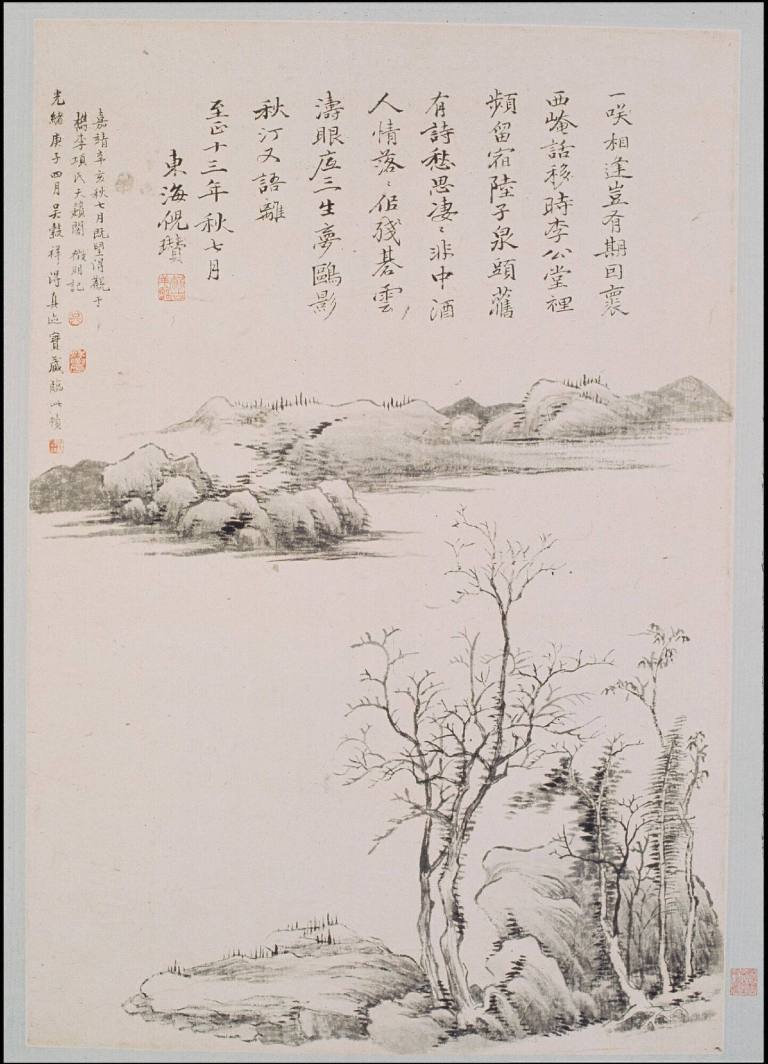 一咲相逢豈有期
西崦話移時李公堂裡
頻留宿陸子泉頭舊
有詩愁思凄〻非中酒
人情落〻佀殘碁雲
濤眼底三生夢鷗影
秋汀又語離
至正十三年秋七月
東海倪瓚
嘉靖辛亥秋七月既望得觀于
檇李項氏天籟閣 徵明記
光緒庚子四月吳穀祥得真迹寶藏臨此幀